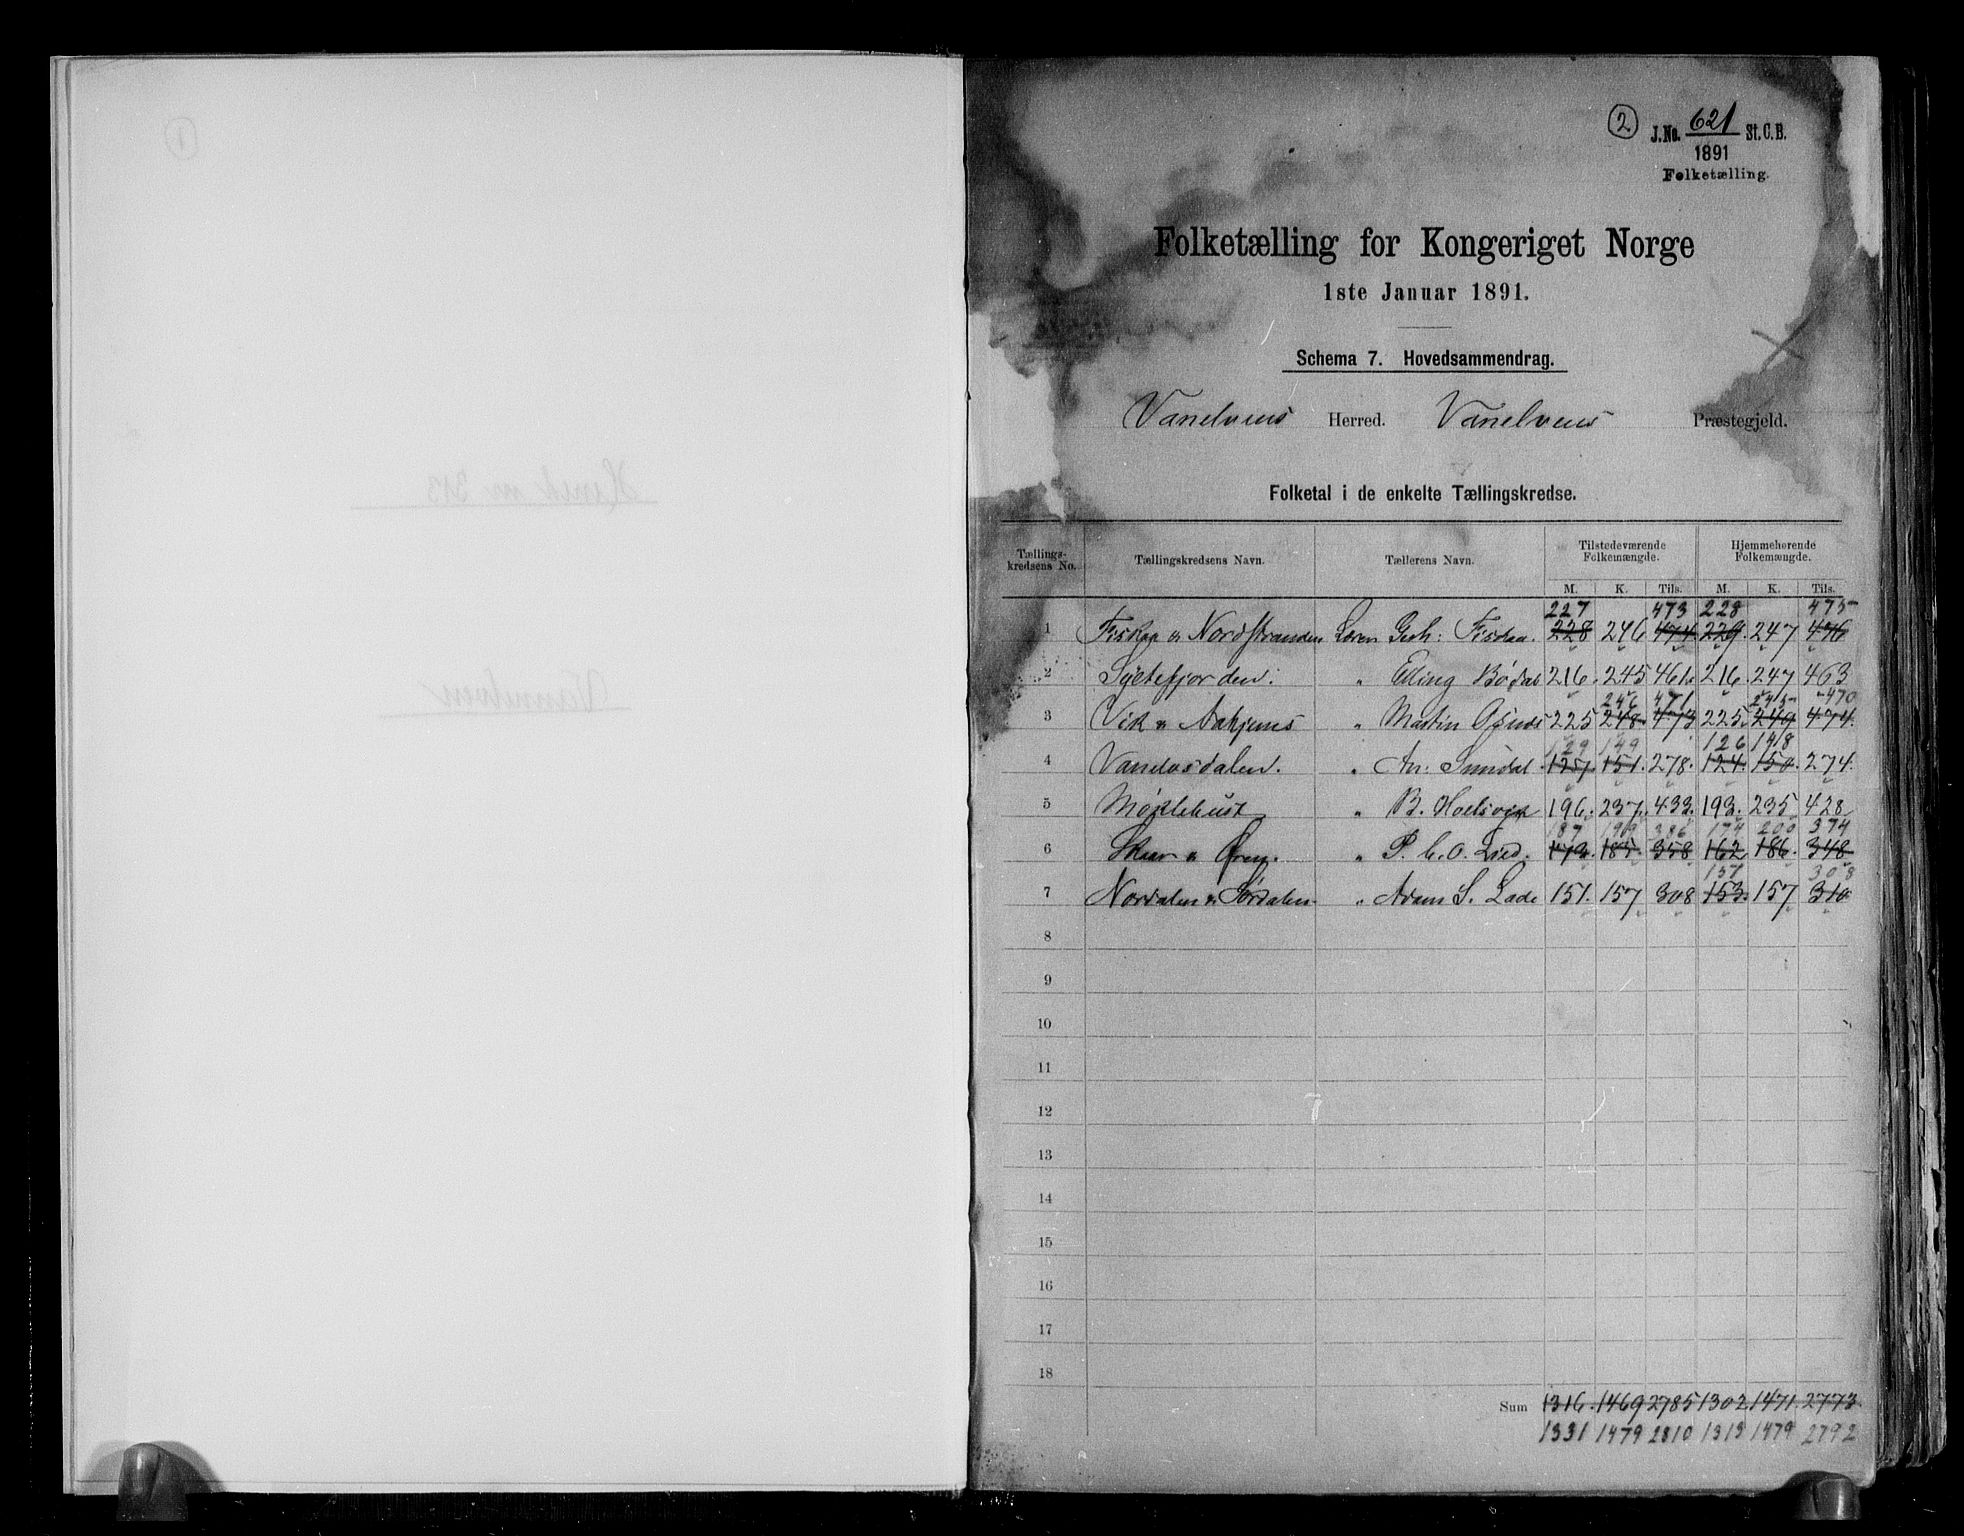 2
J.No. 621 St.C.B.
1891
Folketælling.
Folketælling for Kongeriget Norge
1ste Januar 1891.
Schema 7. Hovedsammendrag.
Vanelvens Herred. Vanelvens Præstegjeld.
Folketal i de enkelte Tællingskredse.
Tællings-kredsens No. Tællingskredsens Navn. Tællerens Navn. Tilstedeværende Folkemængde. Hjemmehørende Folkemængde.
M. K. Tils. M. K. Tils.
227 473 228 475
1 Fiskaa & Nordstranden Lærer Gerh: Fiskaa. 228 246 474 229 247 476
2 Syltefjorden: " Eling Bødal 216 245 461 216 247 463
246 471 245 470
3 Vik & Aahjems " Martin Osnæs 225 248 473 225 249 474
129 149 126 148
4 Vanelvsdalen. " An: Sundal 127 151 278 124 150 274
5 Møklebust " B. 196 237 433 193 235 428
187 199 386 174 200 374
6 Skaar & Øren. " P. C. O. Lied. 173 185 358 162 186 348
151 308
7 Nordalen & Sørdalen. " Adam S. Lade 151 157 308 153 157 310
8
9
10
11
12
13
14
15
16
17
18
Sum 1316 1469 2785 1302 1471 2773
1331 1479 2810 1313 1479 2792